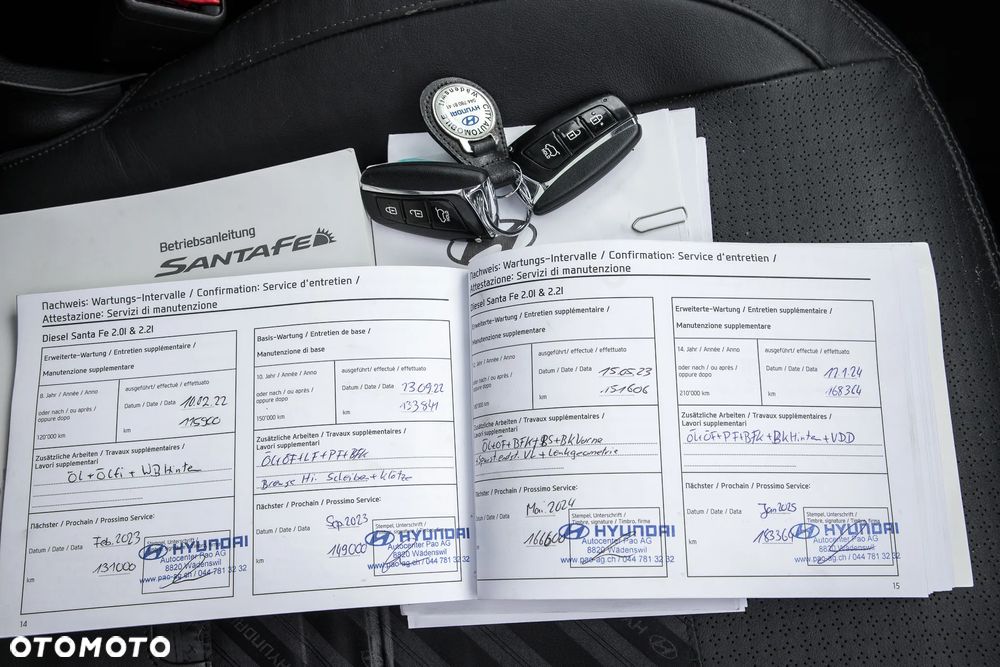 CITY AUTOMOBILE
HYUNDAI
Wädenswil
Betriebsanleitung
SANTA FE
Nachweis: Wartungs-Intervalle / Confirmation: Service d'entretien /
Attestazione: Servizi di manutenzione
Diesel Santa Fe 2.0l & 2.2l
Erweiterte-Wartung / Entretien supplémentaire /
Manutenzione supplementare
8. Jahr / Année / Anno
oder nach / ou après /
oppure dopo
120'000 km
ausgeführt/ effectué / effettuato
Datum / Date / Data 10.02.22
km 115900
Zusätzliche Arbeiten / Travaux supplémentaires /
Lavori supplementari
Öl + Ölfi + WB Hinten
Nächster / Prochain / Prossimo Service:
Datum / Date / Data Feb. 2023
km 131000
Stempel, Unterschrift /
HYUNDAI
Autocenter Pao AG
8820 Wädenswil
www.pao-ag.ch / 044 781 32 32
14
Basis-Wartung / Entretien de base /
Manutenzione di base
10. Jahr / Année / Anno
oder nach / ou après /
oppure dopo
150'000 km
ausgeführt/ effectué / effettuato
Datum / Date / Data 23.09.22
km 133841
Zusätzliche Arbeiten / Travaux supplémentaires /
Lavori supplementari
Öl+ÖF+LF+PF+Bfk
Bremse Hi. Scheiben + Klötze
Nächster / Prochain / Prossimo Service:
Datum / Date / Data Sep 2023
km 149000
Stempel, Unterschrift /
HYUNDAI
Autocenter Pao AG
8820 Wädenswil
www.pao-ag.ch / 044 781 32 32
Nachweis: Wartungs-Intervalle / Confirmation: Service d'entretien /
Attestazione: Servizi di manutenzione
Diesel Santa Fe 2.0l & 2.2l
Erweiterte-Wartung / Entretien supplémentaire /
Manutenzione supplementare
12. Jahr / Année / Anno
oder nach / ou après /
oppure dopo
km
ausgeführt/ effectué / effettuato
Datum / Date / Data 15.05.23
km 151606
Zusätzliche Arbeiten / Travaux supplémentaires /
Lavori supplementari
Öl+ÖF+BFk+BS+BkVorne
VL + Lenkgeometrie
Nächster / Prochain / Prossimo Service:
Datum / Date / Data Mai. 2024
166600
Stempel, Unterschrift /
Timbre, signature / Timbro, firma
HYUNDAI
Autocenter Pao AG
8820 Wädenswil
www.pao-ag.ch / 044 781 32 32
Erweiterte-Wartung / Entretien supplémentaire /
Manutenzione supplementare
14. Jahr / Année / Anno
oder nach / ou après /
oppure dopo
210'000 km
ausgeführt/ effectué / effettuato
Datum / Date / Data 17.1.24
km 168364
Zusätzliche Arbeiten / Travaux supplémentaires /
Lavori supplementari
Öl+ÖF+PF+Bfk+BkHinten+VDD
Nächster / Prochain / Prossimo Service:
Datum / Date / Data Jan 2025
km 183364
Stempel, Unterschrift /
Timbre, signature / Timbro, firma
HYUNDAI
Autocenter Pao AG
8820 Wädenswil
www.pao-ag.ch / 044 781 32 32
15
HYUNDAI
OTOMOTO